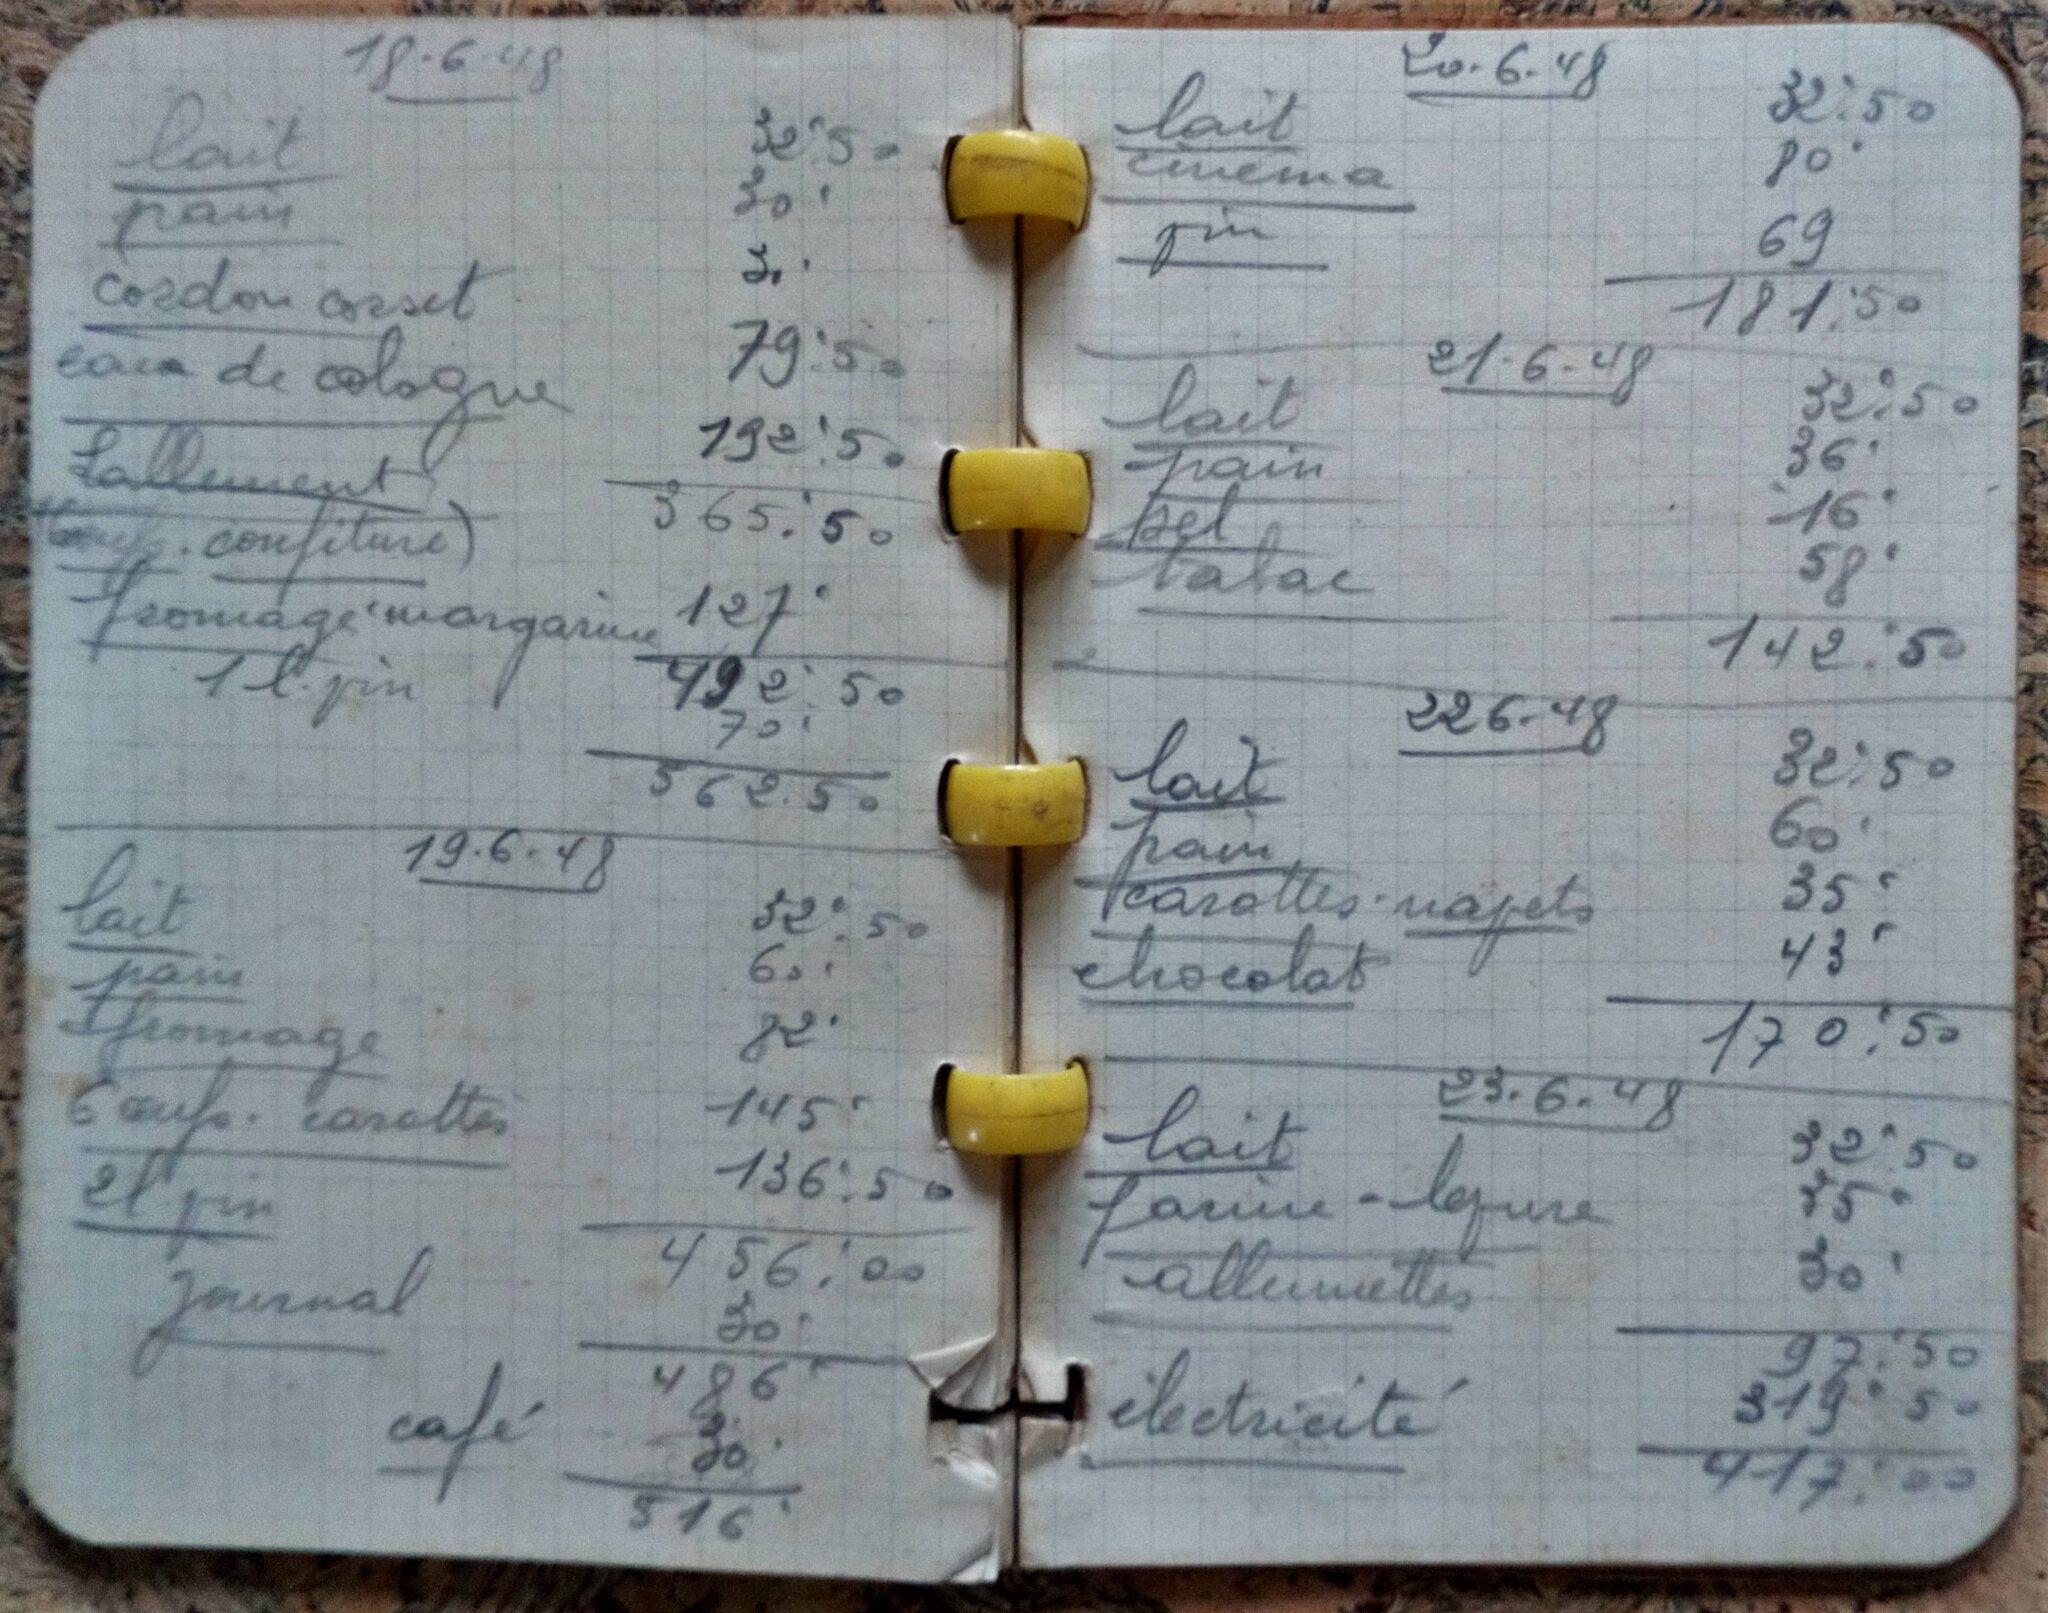 18.6.48
lait 32:50
pain 30'
cordon corset 31'
eau de cologne 79:50
Lallement 192:50
365:50
(6 oeufs. confiture)
fromage margarine 127'
492:50
1 l. vin 70'
562.50
19.6.48
lait 32:50
pain 60'
fromage 82'
6 oeufs. carottes 145'
2 l. vin 136:50
456:00
journal 30'
486'
café 30'
516'
20.6.48
lait 32:50
cinema 80'
vin 69
181:50
21.6.48
lait 32:50
pain 36'
sel 16'
tabac 58'
142:50
22 6.48
lait 32:50
pain 60'
carottes. navets 35'
chocolat 43'
170:50
23.6.48
lait 32:50
farine - levure 35'
allumettes 30'
97:50
électricité 319:50
417:00